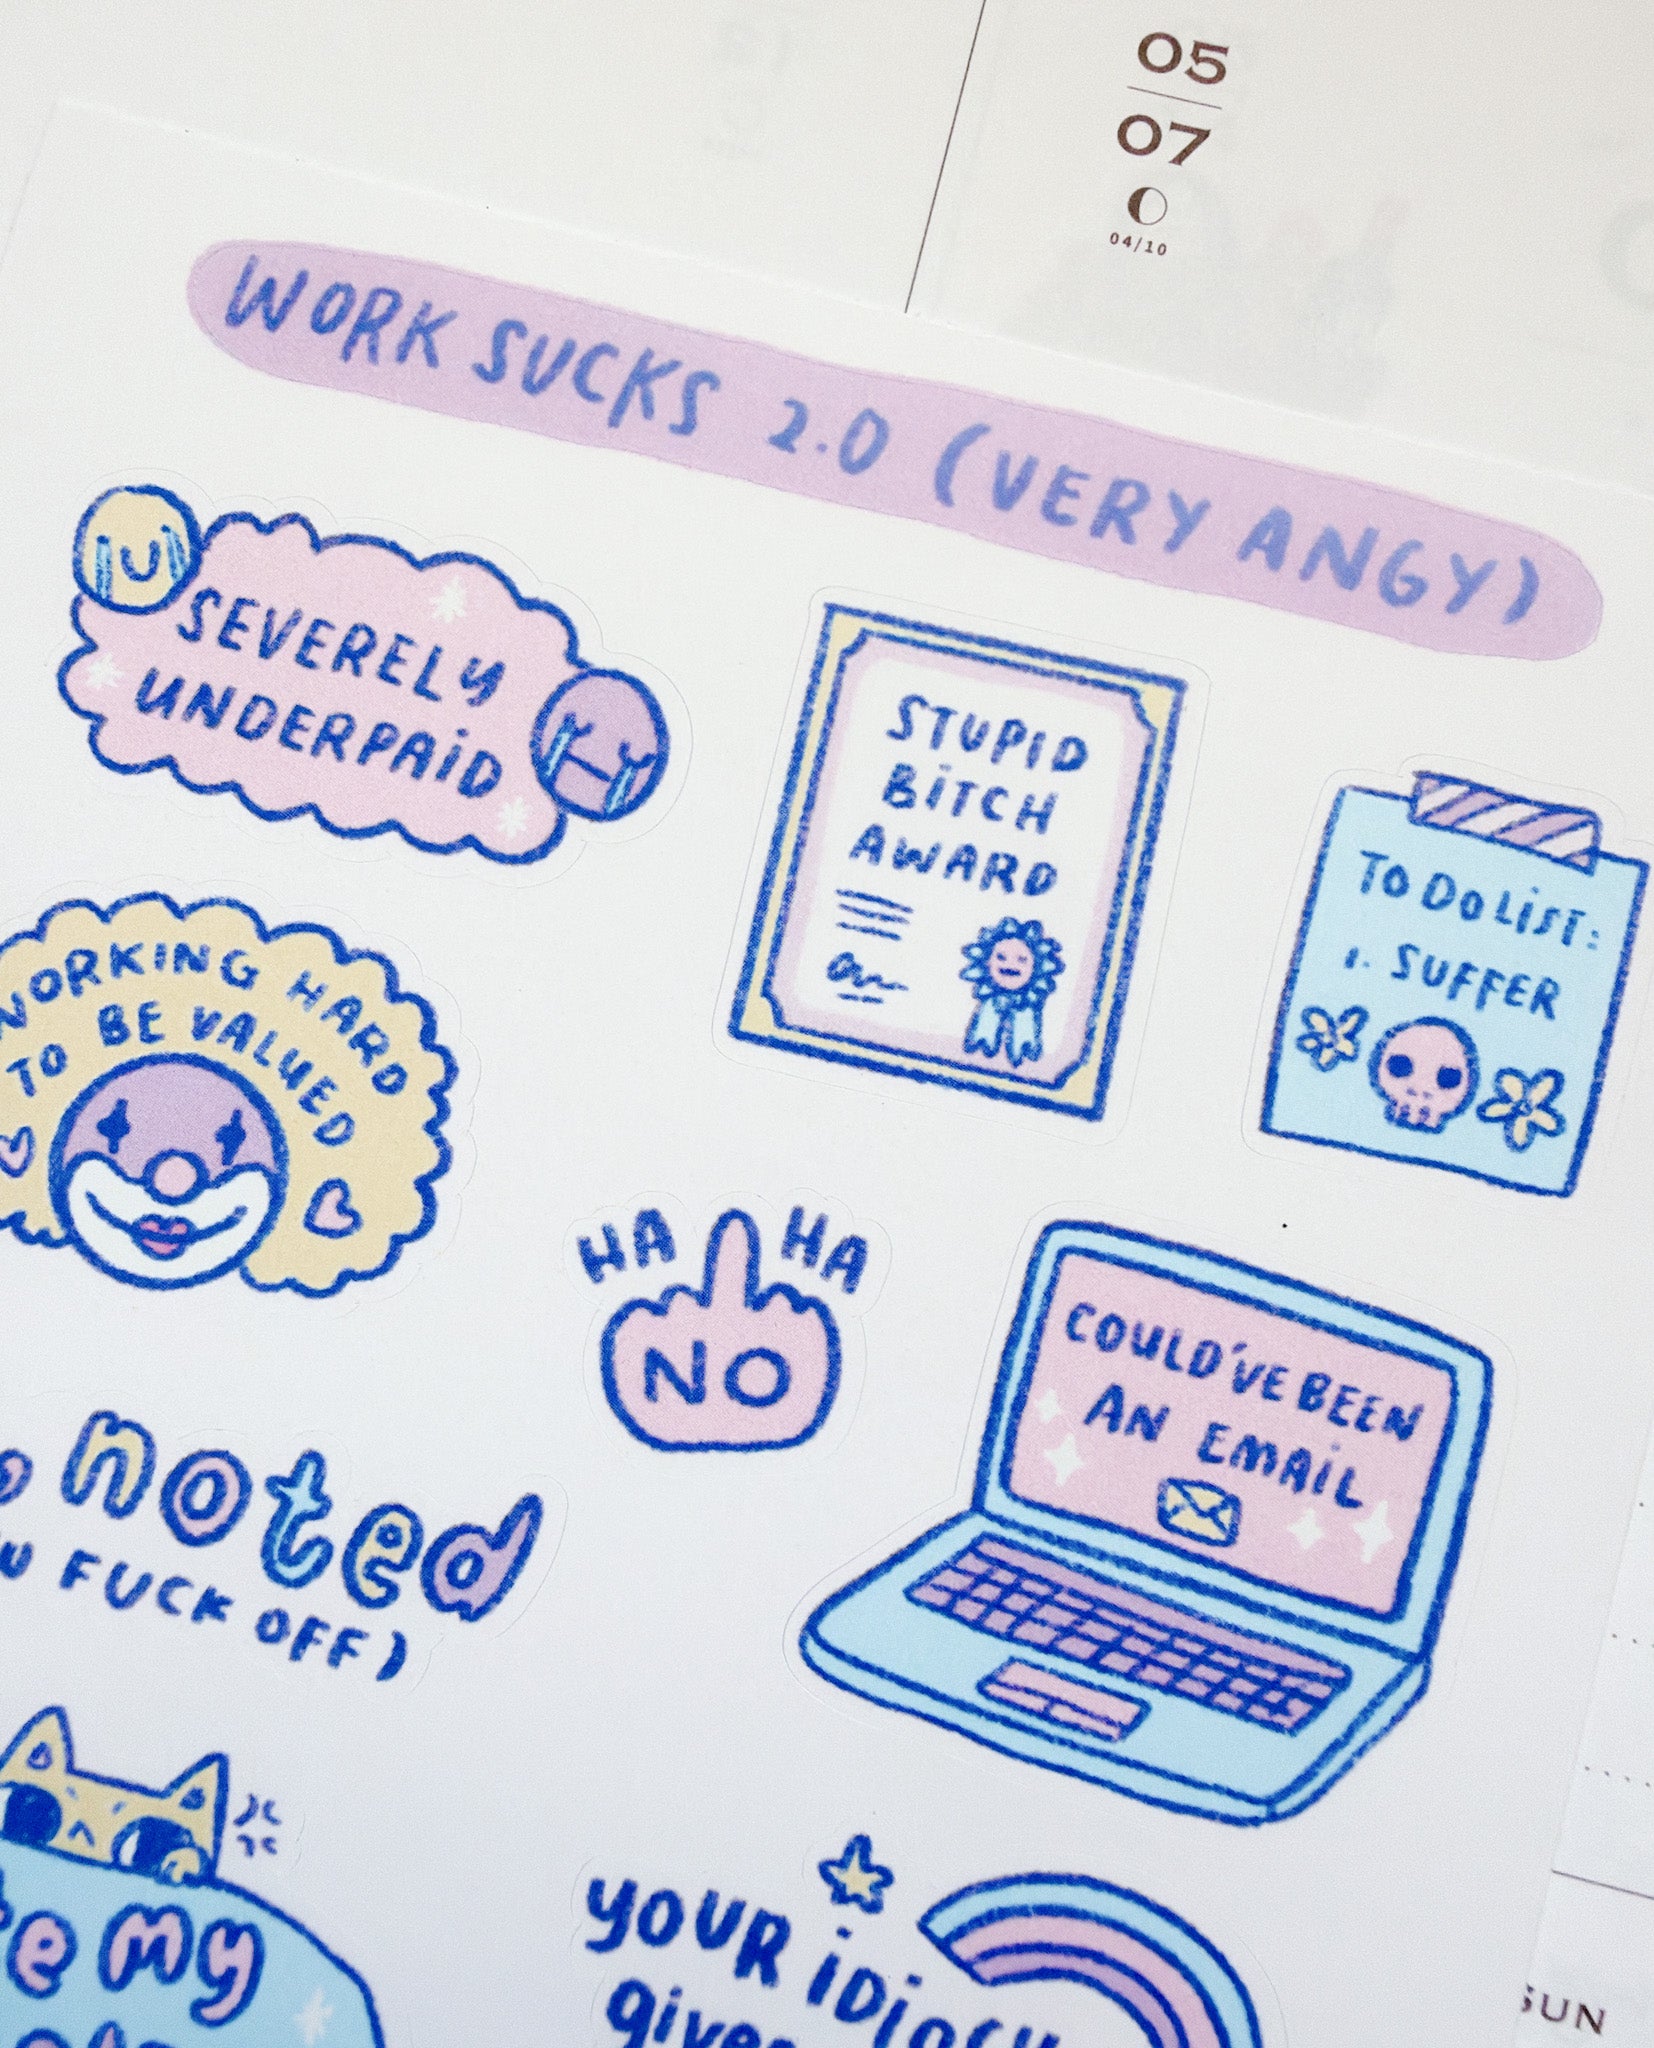 05
07
04/10
WORK SUCKS 2.0 (VERY ANGY)
SEVERELY
UNDERPAID
STUPID
BITCH
AWARD
TO DO LIST:
1. SUFFER
WORKING HARD
TO BE VALUED
HA HA
NO
COULD'VE BEEN
AN EMAIL
noted
FUCK OFF)
my
YOUR iDiOCY
SUN